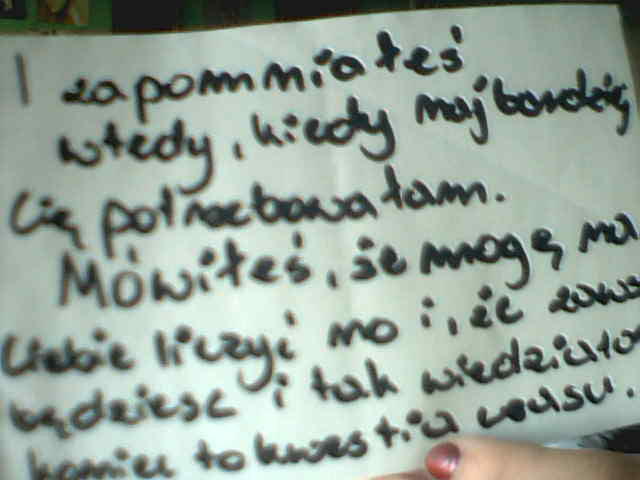 I zapomniałeś
wtedy, kiedy najbardzię
Cię potrzebowałam.
Mówiłeś, że mogę na
Ciebie liczyć no i, że zaws
będziesz i tak wiedziało
koniec to kwestia czasu.